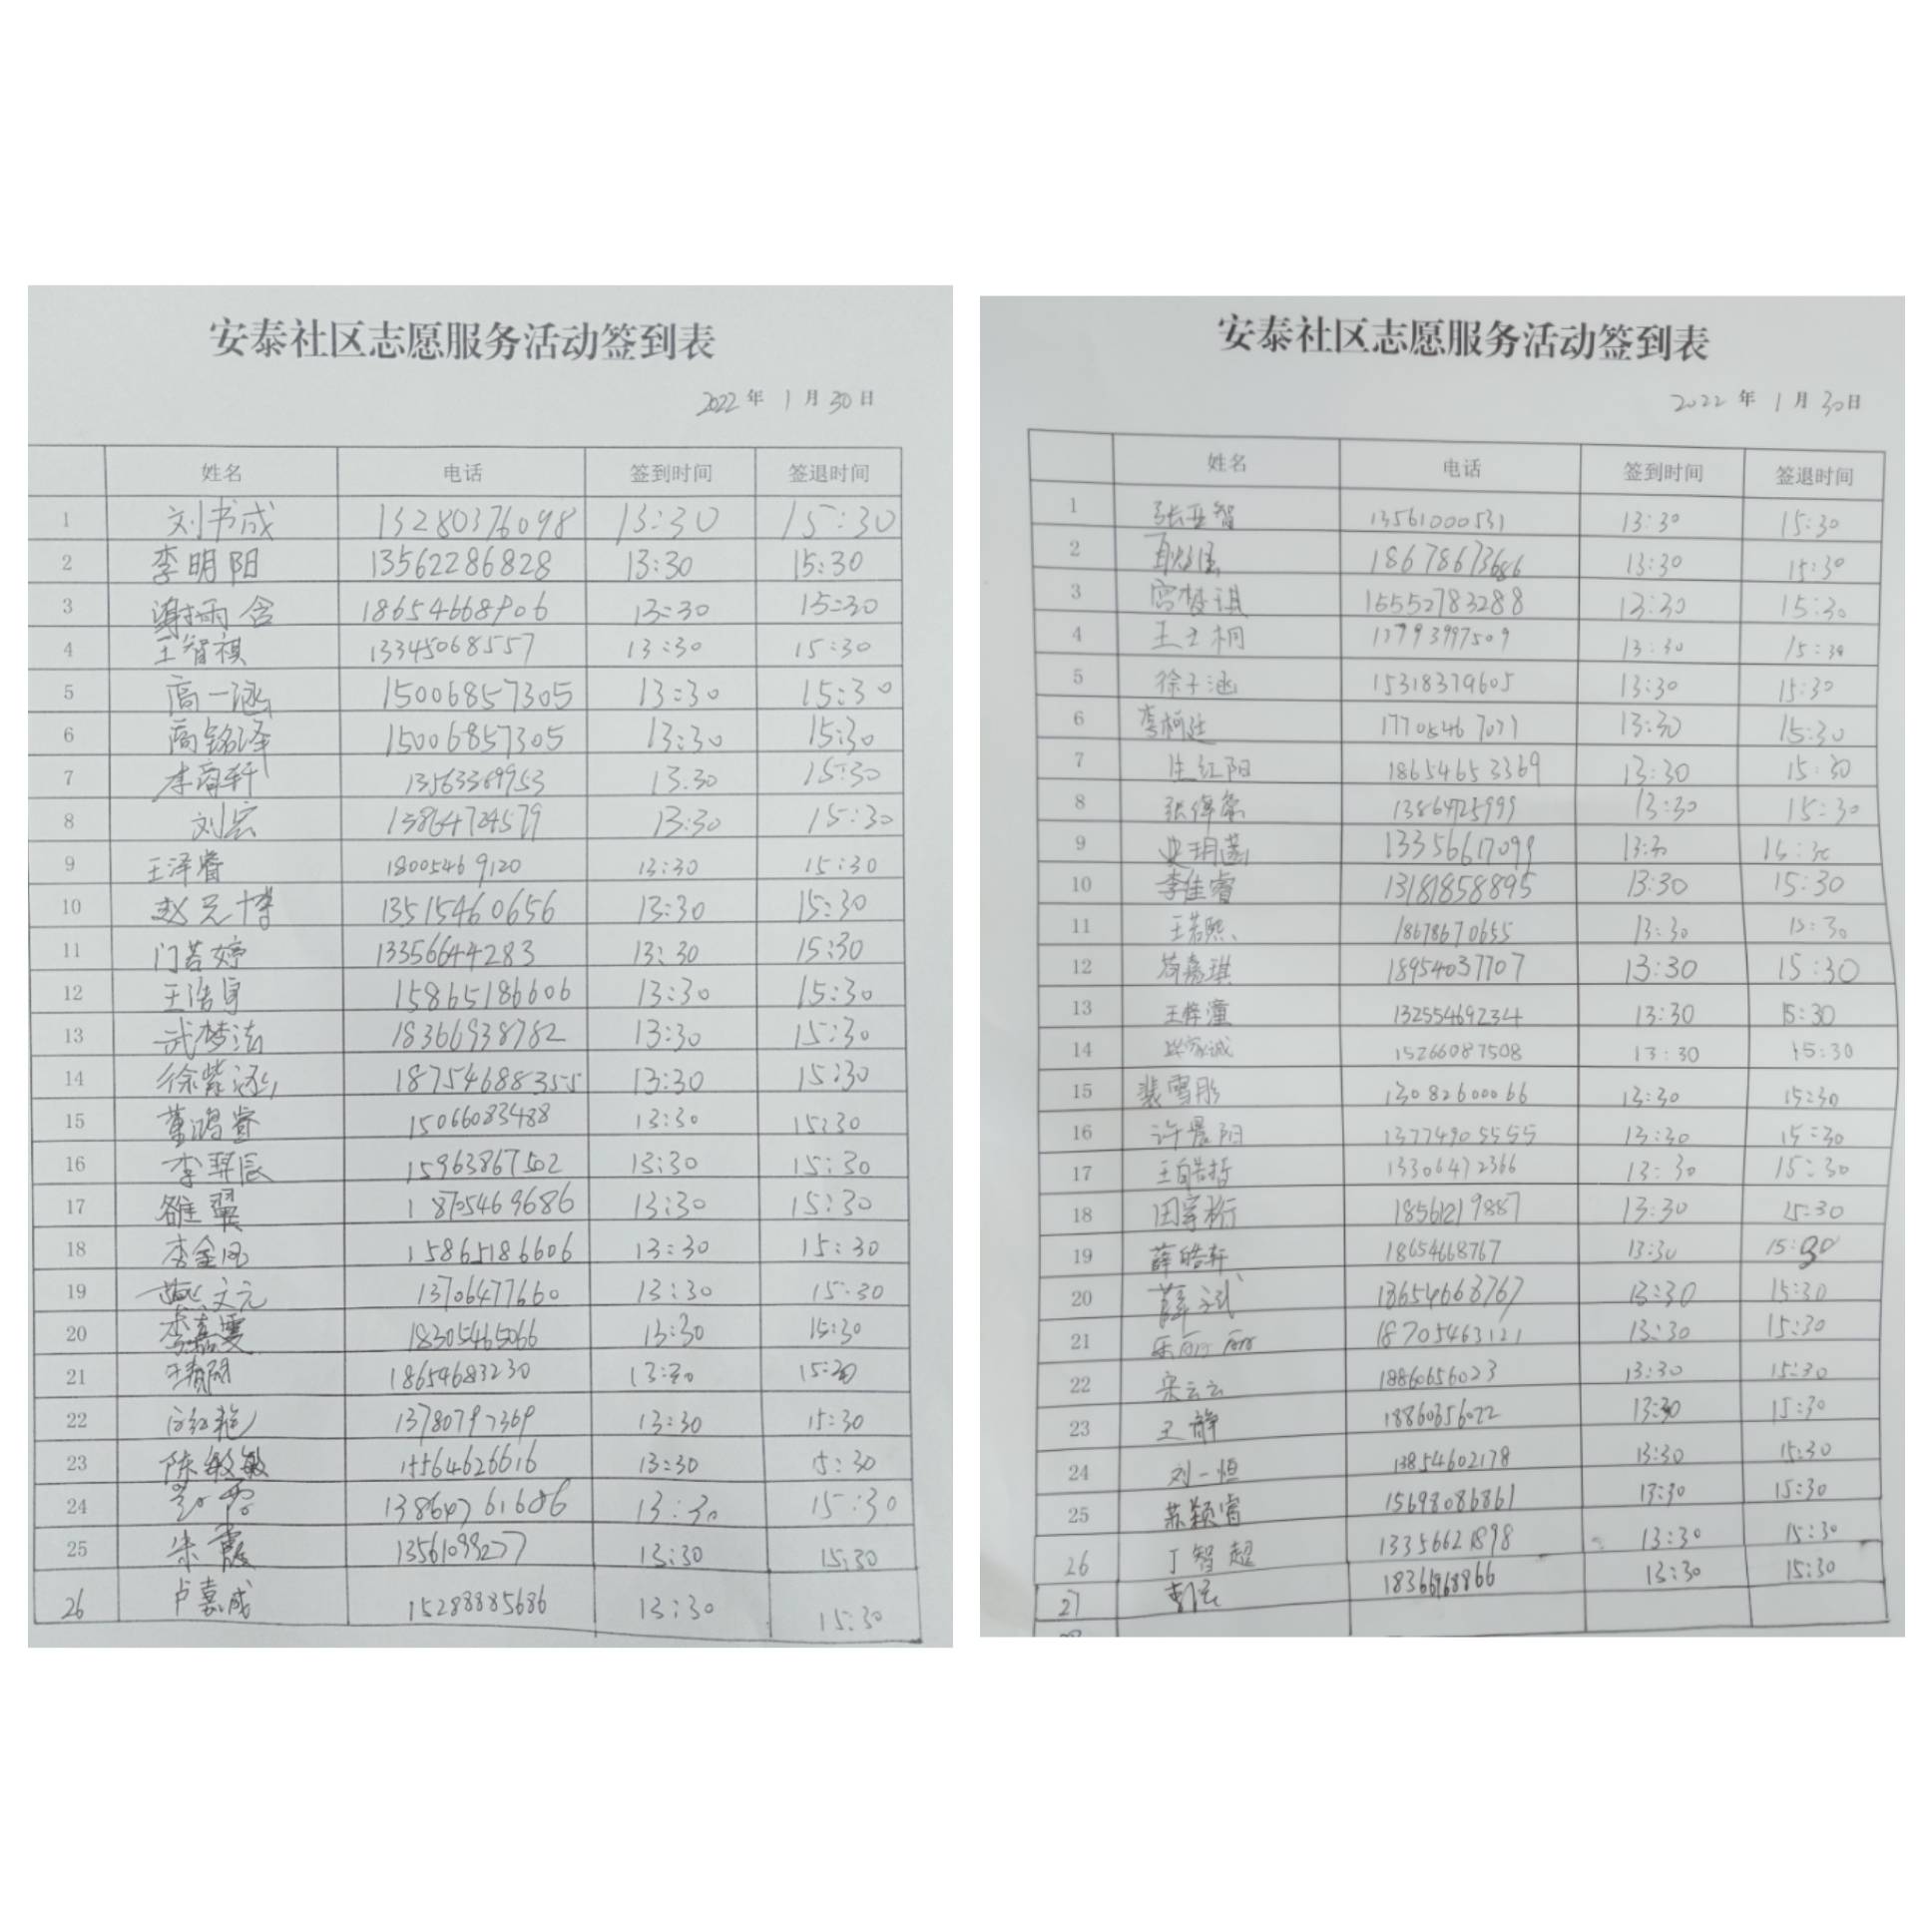 安泰社区志愿服务活动签到表
2022年 1月30日
姓名 电话 签到时间 签退时间
1 刘书成 13280376098 13:30 15:30
2 李明阳 13562286828 13:30 15:30
3 谢雨含 18654668906 13:30 15:30
4 王智祺 13345068557 13:30 15:30
5 高一涵 15006857305 13:30 15:30
6 高铭泽 15006857305 13:30 15:30
7 李商轩 13563369953 13:30 15:30
8 刘宏 13864724579 13:30 15:30
9 王泽睿 18005469120 13:30 15:30
10 赵元博 13515460656 13:30 15:30
11 门若婷 13356644283 13:30 15:30
12 王浩宇 15865186606 13:30 15:30
13 武梦洁 18366938782 13:30 15:30
14 徐紫涵 18754688355 13:30 15:30
15 董鸿睿 15066083488 13:30 15:30
16 李羿辰 15963867502 13:30 15:30
17 翟翼 18705469686 13:30 15:30
18 李金凤 15865186606 13:30 15:30
19 燕文元 13706477660 13:30 15:30
20 李嘉雯 18305465066 13:30 15:30
21 18654683230 13:30 15:30
22 13780797369 13:30 15:30
23 陈敏敏 15564626616 13:30 15:30
24 13864761606 13:30 15:30
25 朱霞 13561099277 13:30 15:30
26 卢嘉成 15288885686 13:30 15:30
安泰社区志愿服务活动签到表
2022年 1月30日
姓名 电话 签到时间 签退时间
1 张亚智 13561000531 13:30 15:30
2 18678673686 13:30 15:30
3 宫梦琪 16552783288 13:30 15:30
4 王玉桐 13793997509 13:30 15:30
5 徐子涵 15318379605 13:30 15:30
6 李柯廷 17705467071 13:30 15:30
7 生红阳 18654653369 13:30 15:30
8 张倬豪 13864725999 13:30 15:30
9 史玥菡 13356617099 13:30 15:30
10 李佳睿 13181858895 13:30 15:30
11 王若熙 18678670655 13:30 15:30
12 苟嘉琪 18954037707 13:30 15:30
13 王梓潼 13255469234 13:30 15:30
14 15266087508 13:30 15:30
15 裴雪彤 13082600066 13:30 15:30
16 许晨阳 13774905555 13:30 15:30
17 王皓哲 13306472366 13:30 15:30
18 田宇桁 18561219887 13:30 15:30
19 薛皓轩 18654668767 13:30 15:30
20 薛斌 18654668767 13:30 15:30
21 乐丽丽 18705463121 13:30 15:30
22 宋云云 18860656023 13:30 15:30
23 王静 18860356022 13:30 15:30
24 刘一恒 13854602178 13:30 15:30
25 苏颖睿 15698086861 13:30 15:30
26 丁智超 13356621898 13:30 15:30
27 18366968866 13:30 15:30